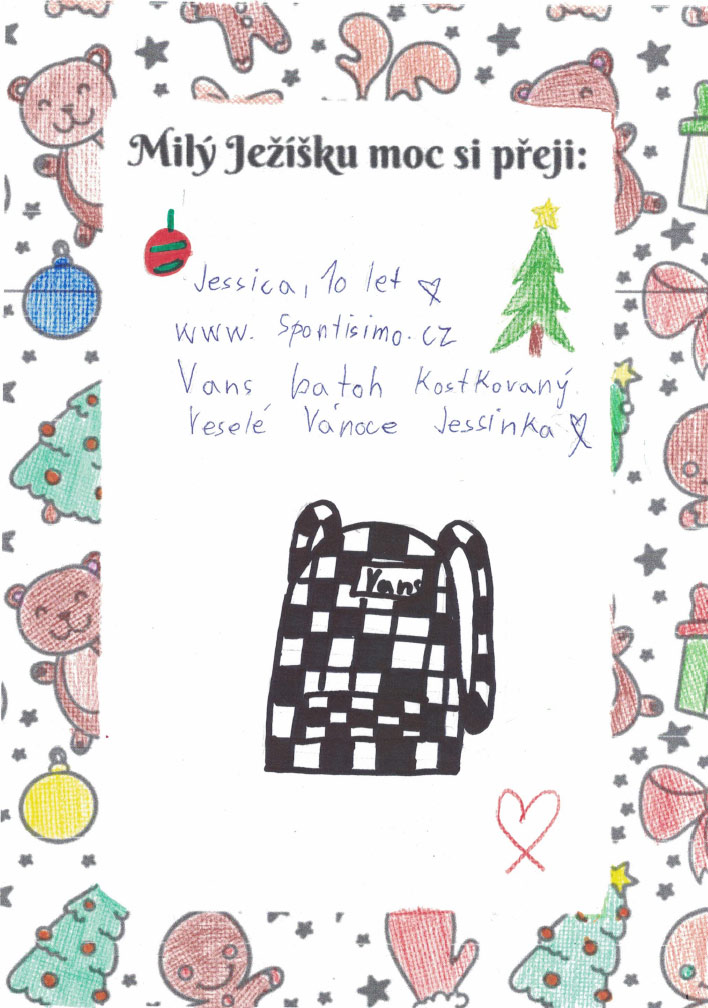 Milý Ježíšku moc si přeji:
Jessica, 10 let
www. Spontisimo.cz
Vans batoh Kostkovaný
Veselé Vánoce Jessinka
Vans